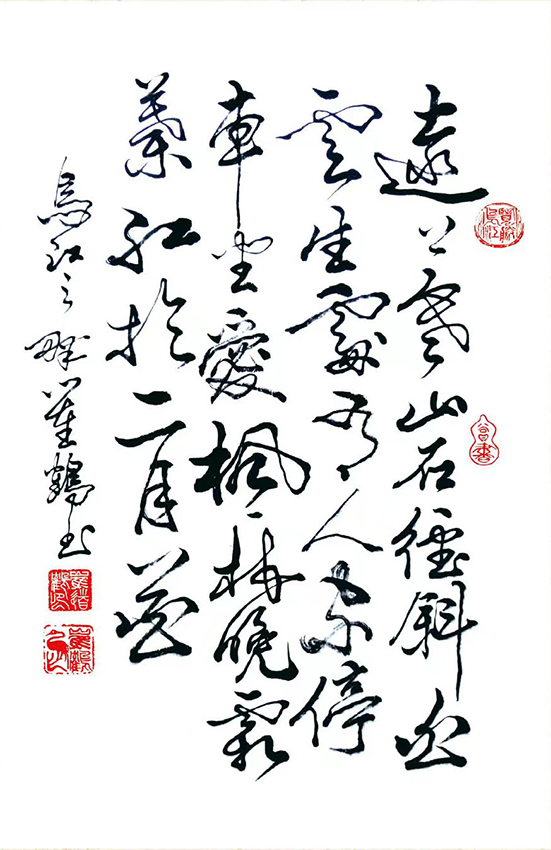 遠上寒山石徑斜白
雲生處有人家停
車坐愛楓林晚霜
葉紅於二月花
烏江之畔崔鶴